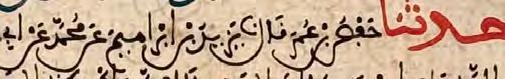 حدثنا حفص بن عمر قال نا يزيد بن ابراهيم عن محمد عن ابي